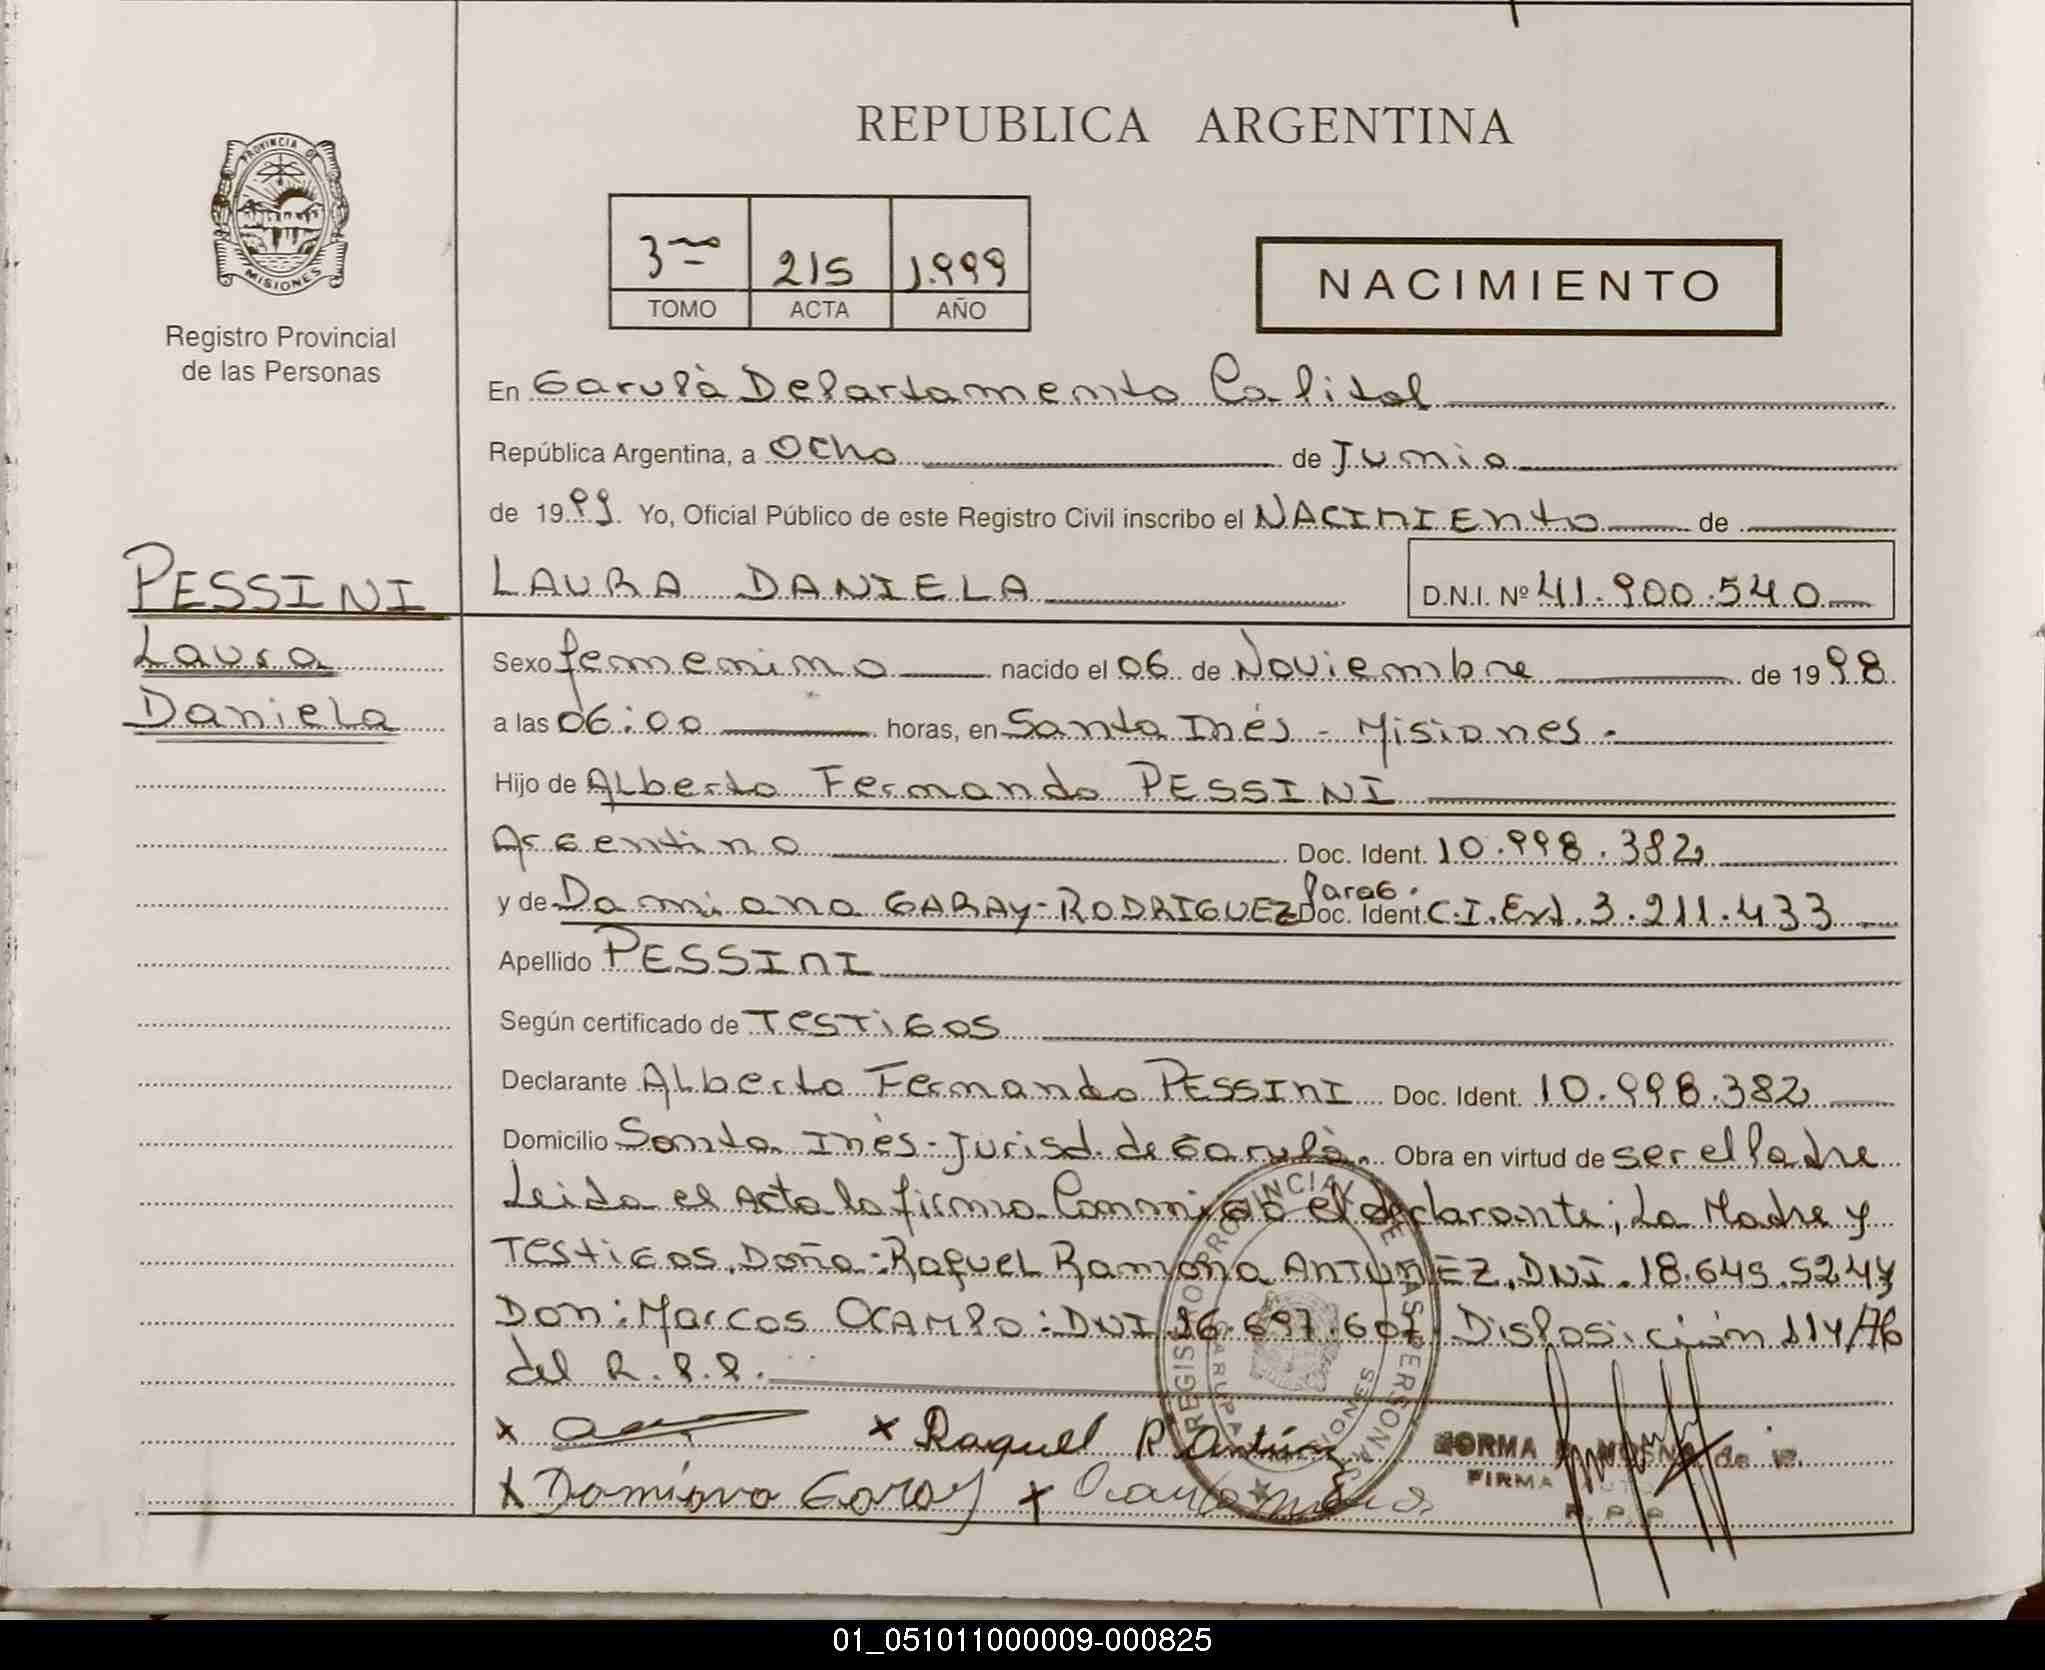 REPUBLICA ARGENTINA
PROVINCIA DE
MISIONES
Registro Provincial
de las Personas
3ro 215 1.999
TOMO ACTA AÑO
NACIMIENTO
En Garupá Departamento Capital
República Argentina, a Ocho de Junio
de 1999. Yo, Oficial Público de este Registro Civil inscribo el NACIMIENto de
PESSINI
Laura
Daniela
LAURA DANIELA D.N.I. Nº 41.900.540
Sexo femenino nacido el 06 de Noviembre de 1998
a las 06:00 horas, en Santa Inés - Misiones.
Hijo de Alberto Fernando PESSINI
Argentino Doc. Ident. 10.998.382
y de Damiana GARAY-RODRIGUEZ Doc. Ident. Parag. C.I. Ext. 3.211.433
Apellido PESSINI
Según certificado de Testigos
Declarante Alberto Fernando PESSINI Doc. Ident. 10.998.382
Domicilio Santa Inés - Jurisd. de Garupá. Obra en virtud de ser el Padre
Leida el Acta la firma Conmigo el declarante; La Madre y
Testigos. Doña: Raquel Ramona ANTUNEZ. DNI. 18.645.524 y
Don: Marcos OCAMPO: DNI 16.697.607. Disposición 114/76
del R.P.P.
x x Raquel R Antúnez
x Damiana Garay x Ocampo Marcos
REGISTRO PROVINCIAL DE LAS PERSONAS
GARUPA MISIONES
NORMA de
FIRMA
R. P. P.
01_051011000009-000825